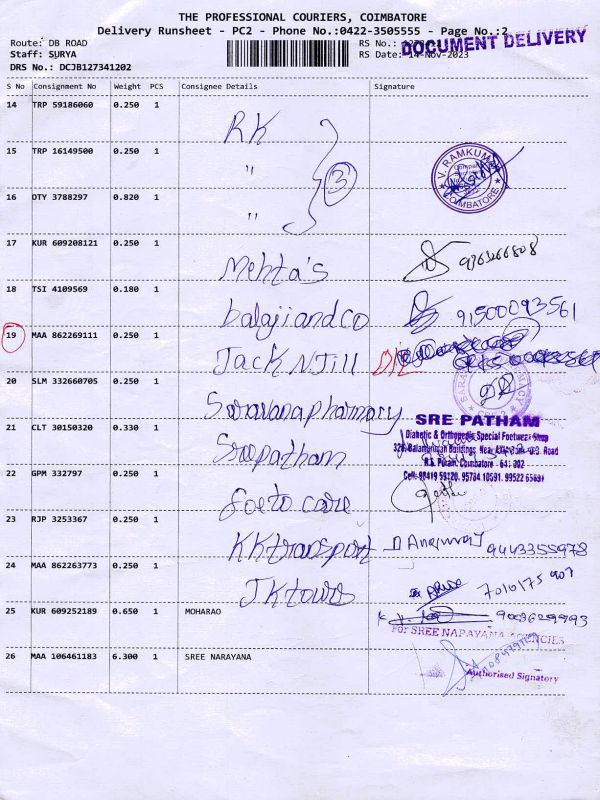 THE PROFESSIONAL COURIERS, COIMBATORE
Delivery Runsheet - PC2 - Phone No.:0422-3505555 - Page No.:2
Route: DB ROAD
RS No.:
DOCUMENT DELIVERY
Staff: SURYA
RS Date: 14-Nov-2023
DRS No.: DCJB127341202
S No Consignment No Weight PCS Consignee Details Signature
14 TRP 59186060 0.250 1 RK
15 TRP 16149500 0.250 1 "
3
V. RAMKUMAR
COIMBATORE
16 OTY 3788297 0.820 1 "
17 KUR 609208121 0.250 1 Mehta's
18 TSI 4109569 0.180 1 balajiandco 91500093561
19 MAA 862269111 0.250 1 Jack N Jill D/L
20 SLM 332660705 0.250 1 Saravanapharmary
21 CLT 30150320 0.330 1 Sreepatham
SRE PATHAM
Diabetic & Orthopedic Special Footwear Shop
R.S. Puram, Coimbatore - 641 002
22 GPM 332797 0.250 1 foeto care
23 RJP 3253367 0.250 1 KKtransport 9443355978
24 MAA 862263773 0.250 1 JKtours 7010175907
25 KUR 609252189 0.650 1 MOHARAO 9003629993
For SREE NARAYANA AGENCIES
26 MAA 106461183 6.300 1 SREE NARAYANA
Authorised Signatory